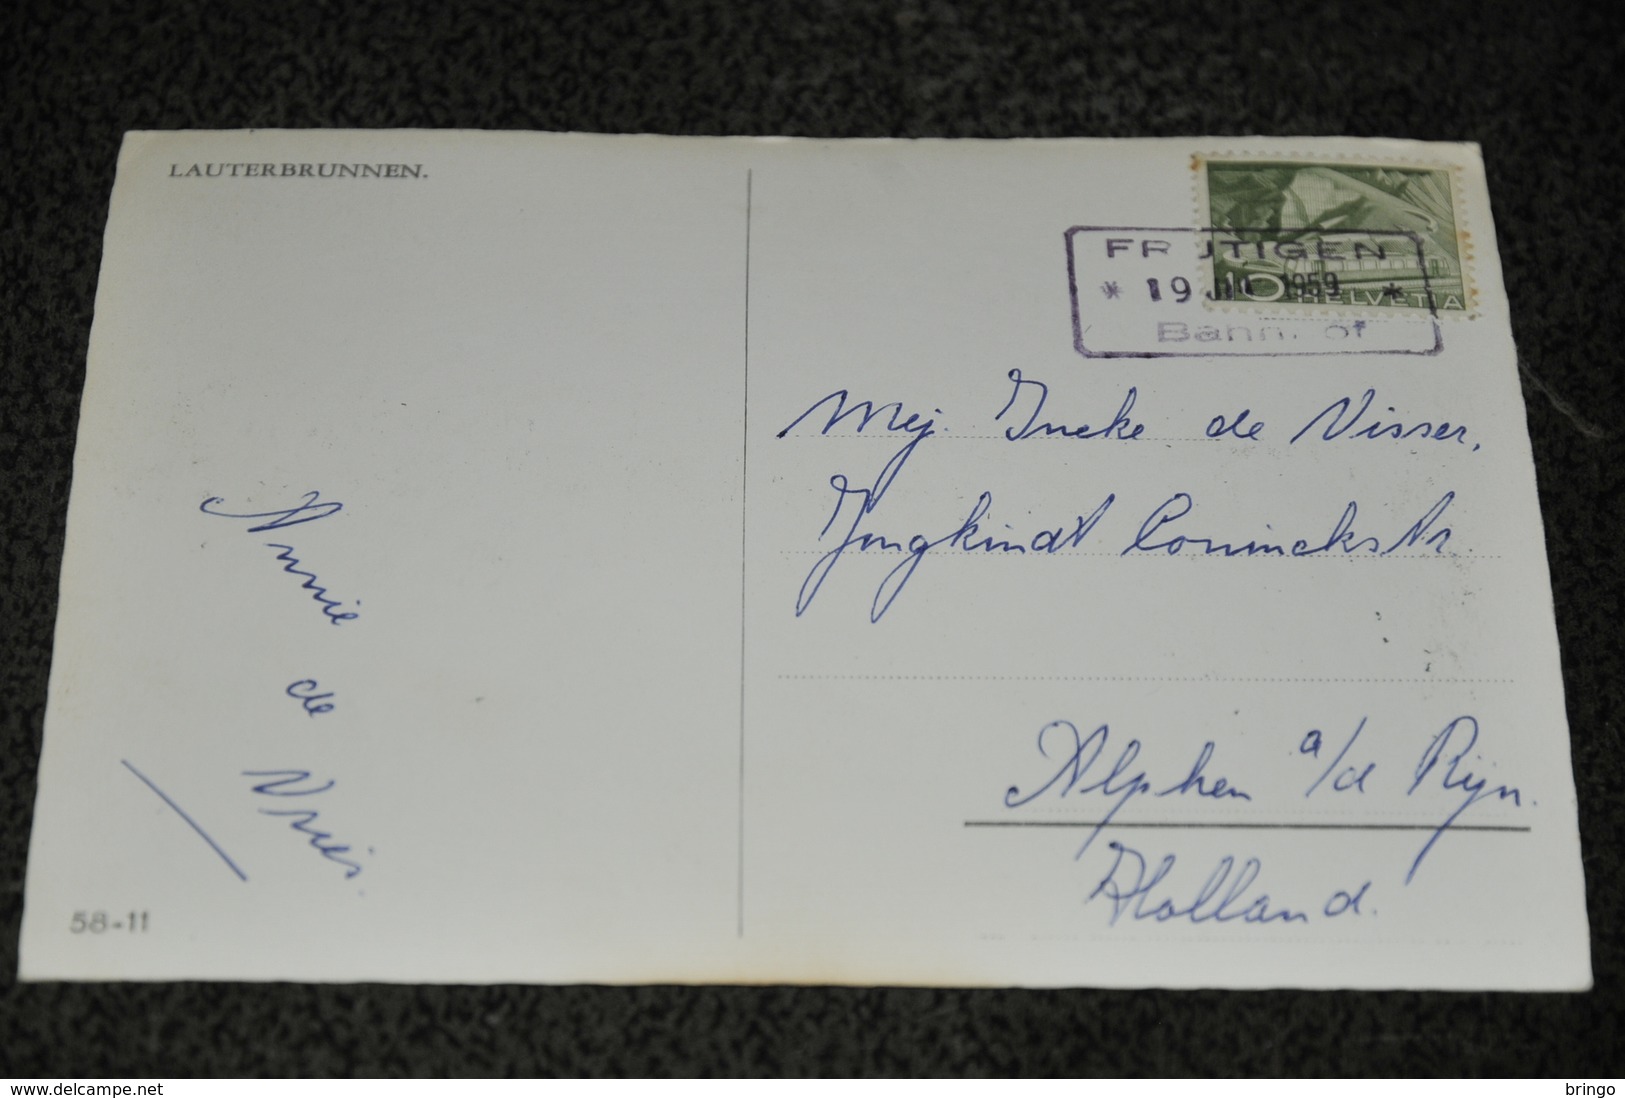 LAUTERBRUNNEN.
FRUTIGEN
* 19 1959 *
10 HELVETIA
Mej. Ineke de Visser,
Jongkindt Coninckstr.
Alphen a/d Rijn.
Holland.
Annie
de
Vries.
58-11
www.delcampe.net
bringo